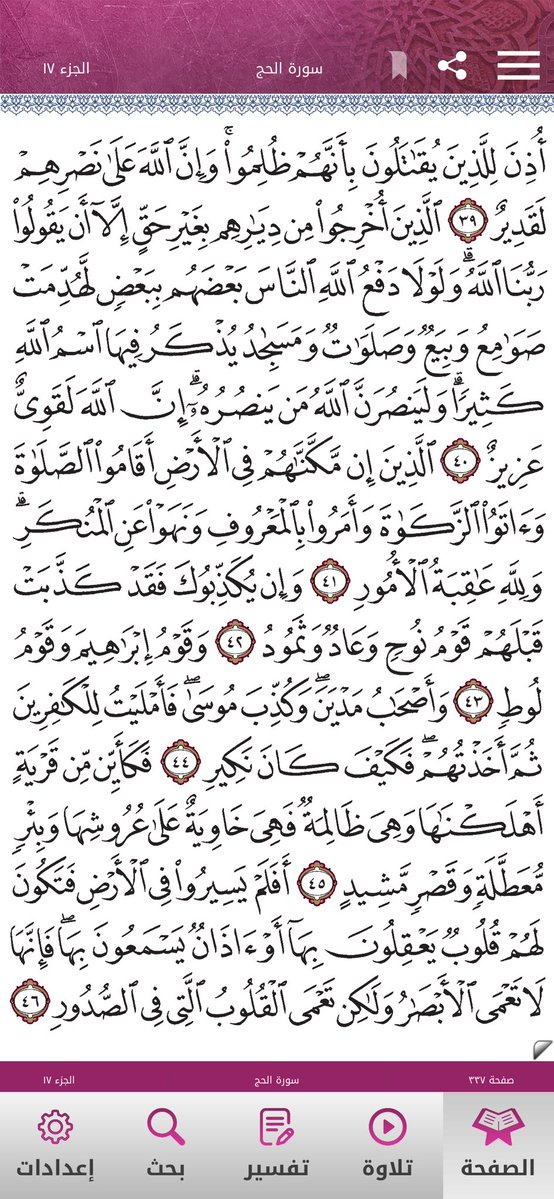 الجزء ١٧ سورة الحج
أُذِنَ لِلَّذِينَ يُقَٰتَلُونَ بِأَنَّهُمْ ظُلِمُوا۟ ۚ وَإِنَّ ٱللَّهَ عَلَىٰ نَصْرِهِمْ
لَقَدِيرٌ ٣٩ ٱلَّذِينَ أُخْرِجُوا۟ مِن دِيَٰرِهِم بِغَيْرِ حَقٍّ إِلَّآ أَن يَقُولُوا۟
رَبُّنَا ٱللَّهُ ۗ وَلَوْلَا دَفْعُ ٱللَّهِ ٱلنَّاسَ بَعْضَهُم بِبَعْضٍ لَّهُدِّمَتْ
صَوَٰمِعُ وَبِيَعٌ وَصَلَوَٰتٌ وَمَسَٰجِدُ يُذْكَرُ فِيهَا ٱسْمُ ٱللَّهِ
كَثِيرًا ۗ وَلَيَنصُرَنَّ ٱللَّهُ مَن يَنصُرُهُۥٓ ۗ إِنَّ ٱللَّهَ لَقَوِىٌّ
عَزِيزٌ ٤٠ ٱلَّذِينَ إِن مَّكَّنَّٰهُمْ فِى ٱلْأَرْضِ أَقَامُوا۟ ٱلصَّلَوٰةَ
وَءَاتَوُا۟ ٱلزَّكَوٰةَ وَأَمَرُوا۟ بِٱلْمَعْرُوفِ وَنَهَوْا۟ عَنِ ٱلْمُنكَرِ ۗ
وَلِلَّهِ عَٰقِبَةُ ٱلْأُمُورِ ٤١ وَإِن يُكَذِّبُوكَ فَقَدْ كَذَّبَتْ
قَبْلَهُمْ قَوْمُ نُوحٍ وَعَادٌ وَثَمُودُ ٤٢ وَقَوْمُ إِبْرَٰهِيمَ وَقَوْمُ
لُوطٍ ٤٣ وَأَصْحَٰبُ مَدْيَنَ ۖ وَكُذِّبَ مُوسَىٰ ۖ فَأَمْلَيْتُ لِلْكَٰفِرِينَ
ثُمَّ أَخَذْتُهُمْ ۖ فَكَيْفَ كَانَ نَكِيرِ ٤٤ فَكَأَيِّن مِّن قَرْيَةٍ
أَهْلَكْنَٰهَا وَهِىَ ظَالِمَةٌ فَهِىَ خَاوِيَةٌ عَلَىٰ عُرُوشِهَا وَبِئْرٍ
مُّعَطَّلَةٍ وَقَصْرٍ مَّشِيدٍ ٤٥ أَفَلَمْ يَسِيرُوا۟ فِى ٱلْأَرْضِ فَتَكُونَ
لَهُمْ قُلُوبٌ يَعْقِلُونَ بِهَآ أَوْ ءَاذَانٌ يَسْمَعُونَ بِهَا ۖ فَإِنَّهَا
لَا تَعْمَى ٱلْأَبْصَٰرُ وَلَٰكِن تَعْمَى ٱلْقُلُوبُ ٱلَّتِى فِى ٱلصُّدُورِ ٤٦
صفحة ٣٣٧ سورة الحج الجزء ١٧
الصفحة تلاوة تفسير بحث إعدادات